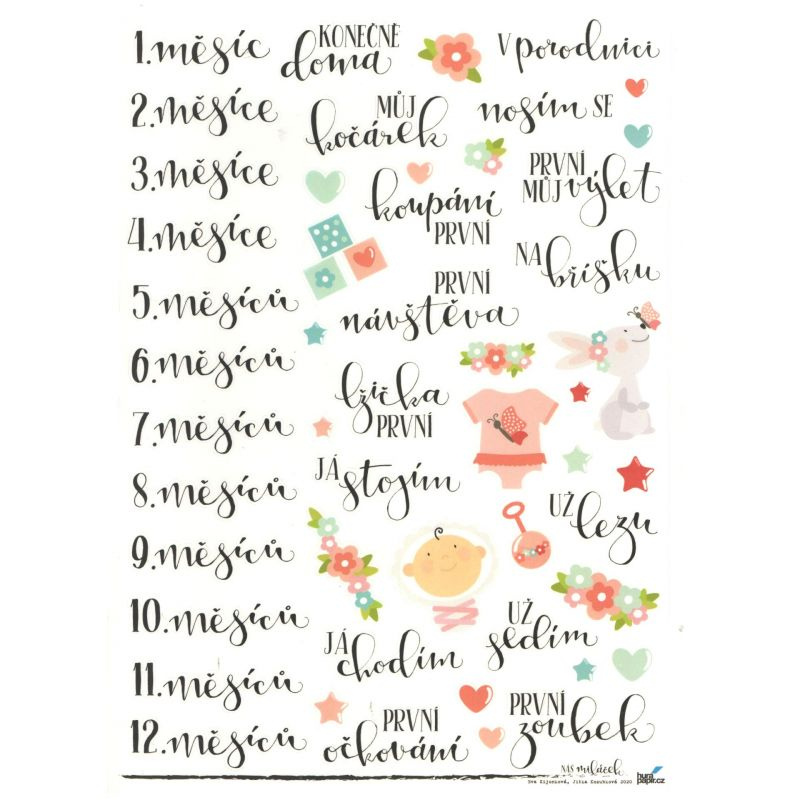 1. měsíc
2. měsíce
3. měsíce
4. měsíce
5. měsíců
6. měsíců
7. měsíců
8. měsíců
9. měsíců
10. měsíců
11. měsíců
12. měsíců
KONEČNĚ
doma
V porodnici
MŮJ
kočárek
nosím SE
koupání
PRVNÍ
PRVNÍ
MŮJ výlet
NA bříšku
PRVNÍ
návštěva
lžička
PRVNÍ
JÁ stojím
UŽ lezu
JÁ chodím
UŽ sedím
PRVNÍ
očkování
PRVNÍ
zoubek
NÁŠ miláček
2020
hura
papir.cz